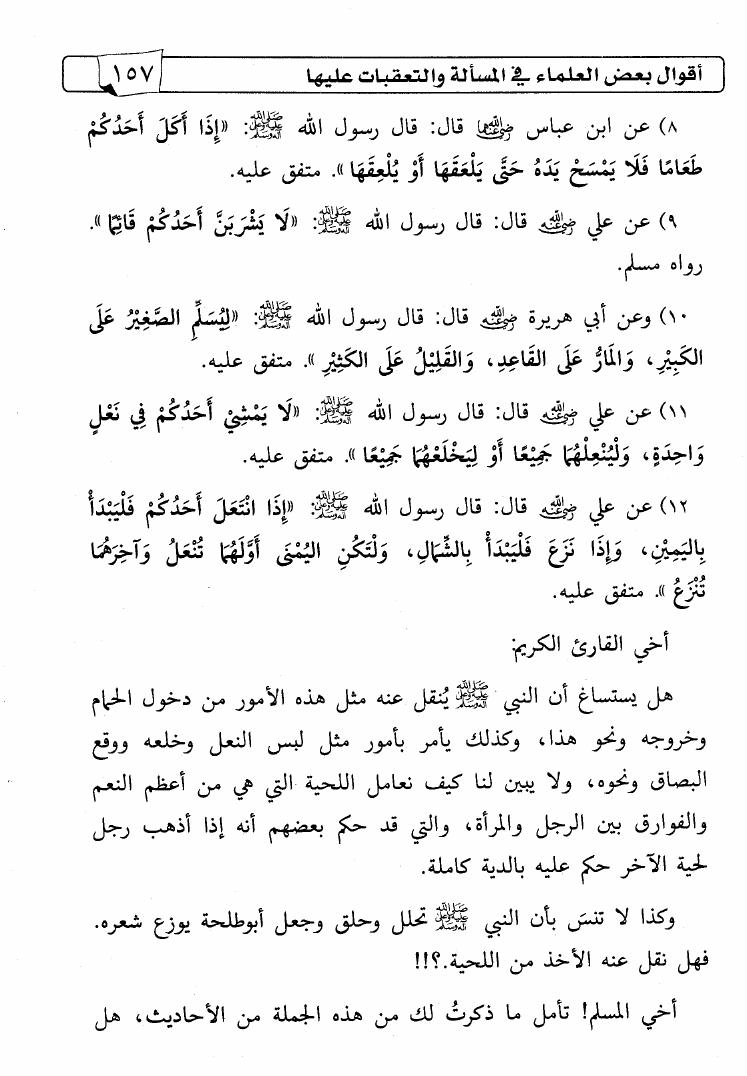 أقوال بعض العلماء في المسألة والتعقبات عليها ١٥٧
٨) عن ابن عباس رضي الله عنهما قال: قال رسول الله ﷺ: «إِذَا أَكَلَ أَحَدُكُمْ
طَعَامًا فَلَا يَمْسَحْ يَدَهُ حَتَّى يَلْعَقَهَا أَوْ يُلْعِقَهَا». متفق عليه.
٩) عن علي رضي الله عنه قال: قال رسول الله ﷺ: «لَا يَشْرَبَنَّ أَحَدُكُمْ قَائِمًا».
رواه مسلم.
١٠) وعن أبي هريرة رضي الله عنه قال: قال رسول الله ﷺ: «لِيُسَلِّمِ الصَّغِيْرُ عَلَى
الكَبِيْرِ، وَالمَارُّ عَلَى القَاعِدِ، وَالقَلِيْلُ عَلَى الكَثِيْرِ». متفق عليه.
١١) عن علي رضي الله عنه قال: قال رسول الله ﷺ: «لَا يَمْشِيْ أَحَدُكُمْ فِي نَعْلٍ
وَاحِدَةٍ، وَلْيُنْعِلْهُمَا جَمِيْعًا أَوْ لِيَخْلَعْهُمَا جَمِيْعًا». متفق عليه.
١٢) عن علي رضي الله عنه قال: قال رسول الله ﷺ: «إِذَا انْتَعَلَ أَحَدُكُمْ فَلْيَبْدَأْ
بِاليَمِيْنِ، وَإِذَا نَزَعَ فَلْيَبْدَأْ بِالشِّمَالِ، وَلْتَكُنِ اليُمْنَى أَوَّلَهُمَا تُنْعَلُ وَآخِرَهُمَا
تُنْزَعُ». متفق عليه.
أخي القارئ الكريم:
هل يستساغ أن النبي ﷺ يُنقل عنه مثل هذه الأمور من دخول الحمام
وخروجه ونحو هذا، وكذلك يأمر بأمور مثل لبس النعل وخلعه ووقع
البصاق ونحوه، ولا يبين لنا كيف نعامل اللحية التي هي من أعظم النعم
والفوارق بين الرجل والمرأة، والتي قد حكم بعضهم أنه إذا أذهب رجل
لحية الآخر حكم عليه بالدية كاملة.
وكذا لا تنسَ بأن النبي ﷺ تحلل وحلق وجعل أبوطلحة يوزع شعره.
فهل نقل عنه الأخذ من اللحية.؟!!!
أخي المسلم! تأمل ما ذكرتُ لك من هذه الجملة من الأحاديث، هل